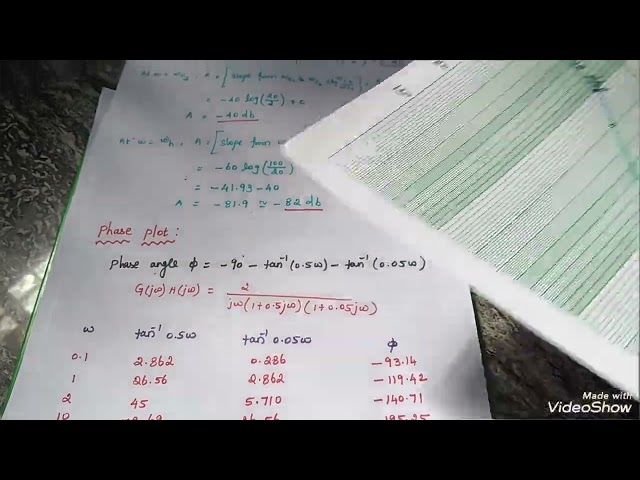 = -40 log(20/2) + 0
A = -40 db
At w = wh, A = [slope from w
= -60 log(100/20)
= -41.93-40
A = -81.9 ≃ -82 db
Phase plot:
Phase angle ϕ = -90° - tan⁻¹(0.5ω) - tan⁻¹(0.05ω)
G(jω)H(jω) = 2 / jω(1+0.5jω)(1+0.05jω)
ω tan⁻¹ 0.5ω tan⁻¹ 0.05ω ϕ
0.1 2.862 0.286 -93.14
1 26.56 2.862 -119.42
2 45 5.710 -140.71
10
Made with
VideoShow